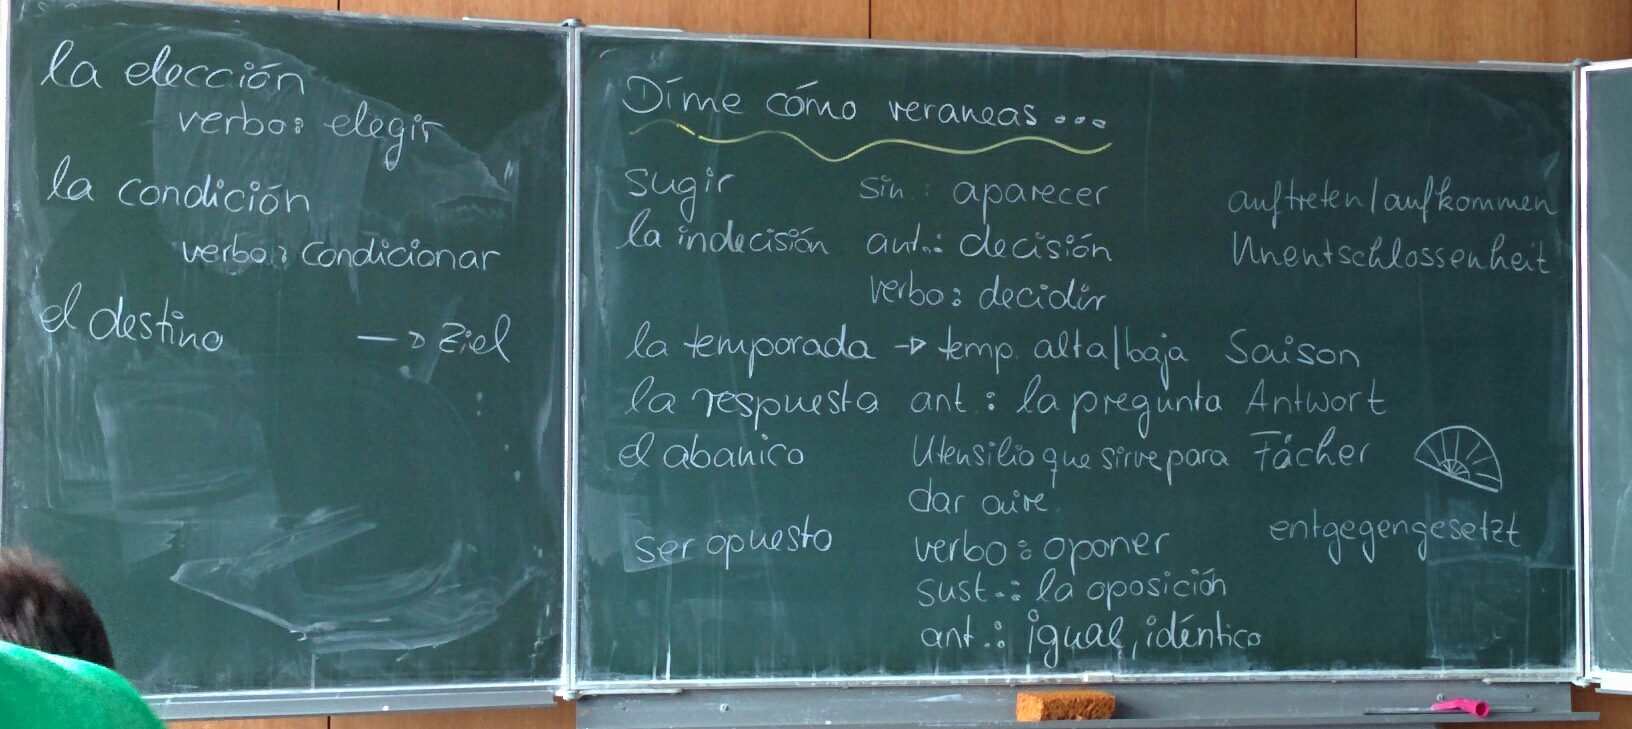 la elección
verbo: elegir
la condición
verbo: condicionar
el destino → Ziel
Díme cómo veraneas...
sugir sin.: aparecer auftreten/aufkommen
la indecisión ant.: decisión Unentschlossenheit
verbo: decidir
la temporada → temp. alta/baja Saison
la respuesta ant.: la pregunta Antwort
el abanico Utensilio que sirve para Fächer
dar aire.
ser opuesto verbo: oponer entgegengesetzt
sust.: la oposición
ant.: igual, idéntico